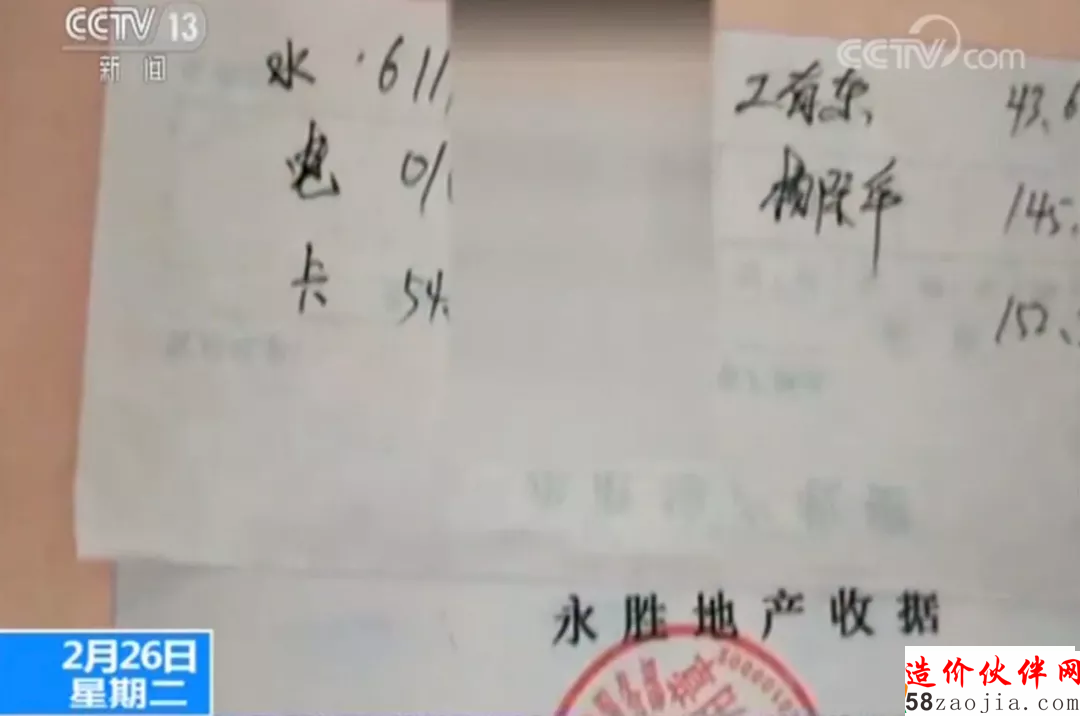 CCTV 13
新闻
CCTV.com
水 ·611
电 01
卡 54.
工有东 43.6
杨际年 145.
152.
永胜地产收据
2月26日
星期二
造价伙伴网
58zaojia.com